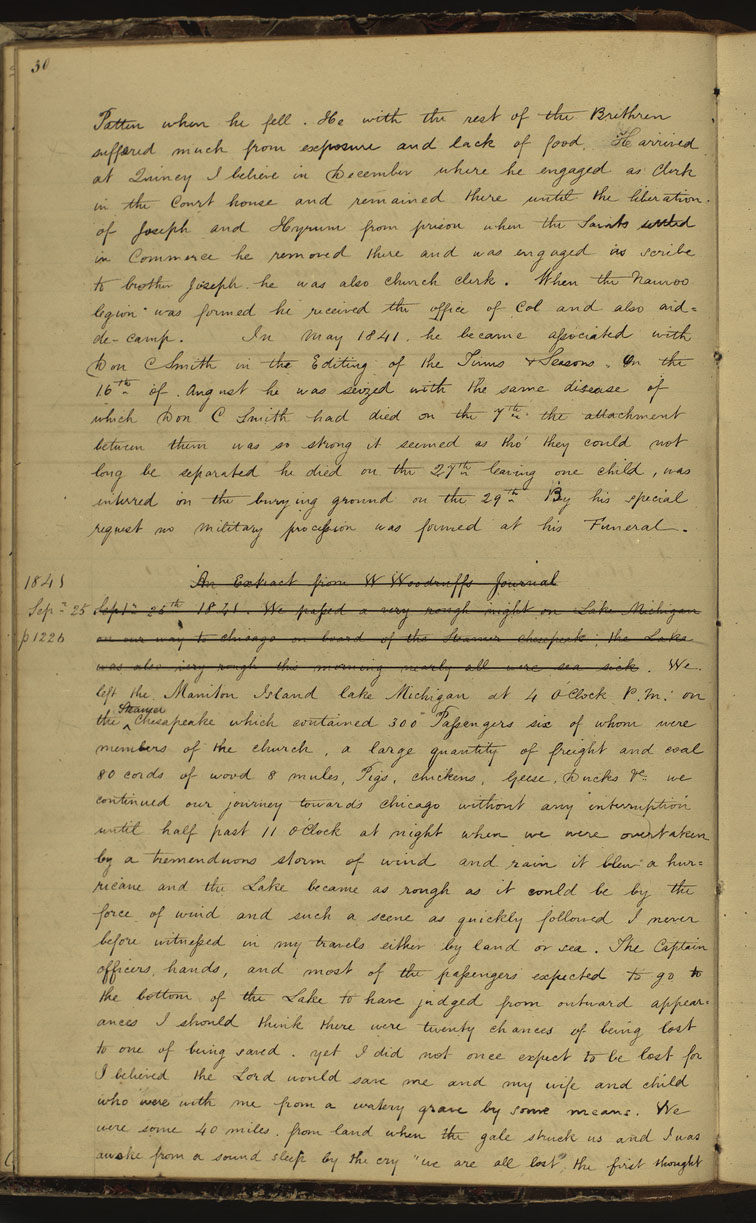 30
Patten when he fell. He with the rest of the Brethren
suffered much from exposure and lack of food. He arrived
at Quincy I believe in December where he engaged as Clerk
in the Court house and remained there until the liberation
of Joseph and Hyrum from prison when the Saints settled
in Commerce he removed there and was engaged as scribe
to brother Joseph. he was also church clerk. When the Nauvoo
legion was formed he received the office of Col and also aid=
de-camp. In May 1841. he became associated with
Don C Smith in the Editing of the Times & Seasons. On the
16th of August he was seized with the same disease of
which Don C Smith had died on the 7th. the attachment
between them was so strong it seemed as tho' they could not
long be separated he died on the 27th leaving one child, was
interred in the burying ground on the 29th By his special
request no military procession was formed at his Funeral.
1841 An Extract from W Woodruffs Journal
Sep. 25 Sept 25th 1841. We passed a very rough night on Lake Michigan
p 1226 on our way to chicago on board of the Steamer chesepeak, the Lake
was also very rough this morning nearly all were sea sick. We
left the Maniton Island lake Michigan at 4 O'Clock P.M. on
the Steamer Chesapeake which contained 300 Passengers six of whom were
members of the church, a large quantity of freight and coal
80 cords of wood 8 mules, Pigs, chickens, Geese, Ducks &c. we
continued our journey towards chicago without any interruption
until half past 11 O'Clock at night when we were overtaken
by a tremenduous storm of wind and rain it blew a hur=
ricane and the Lake became as rough as it could be by the
force of wind and such a scene as quickly followed I never
before witnessed in my travels either by land or sea. The Captain
officers, hands, and most of the passengers expected to go to
the bottom of the Lake to have judged from outward appear=
ances I should think there were twenty chances of being lost
to one of being saved. yet I did not once expect to be lost for
I believed the Lord would save me and my wife and child
who were with me from a watery grave by some means. We
were some 40 miles from land when the gale struck us and I was
awoke from a sound sleep by the cry "we are all lost", the first thought